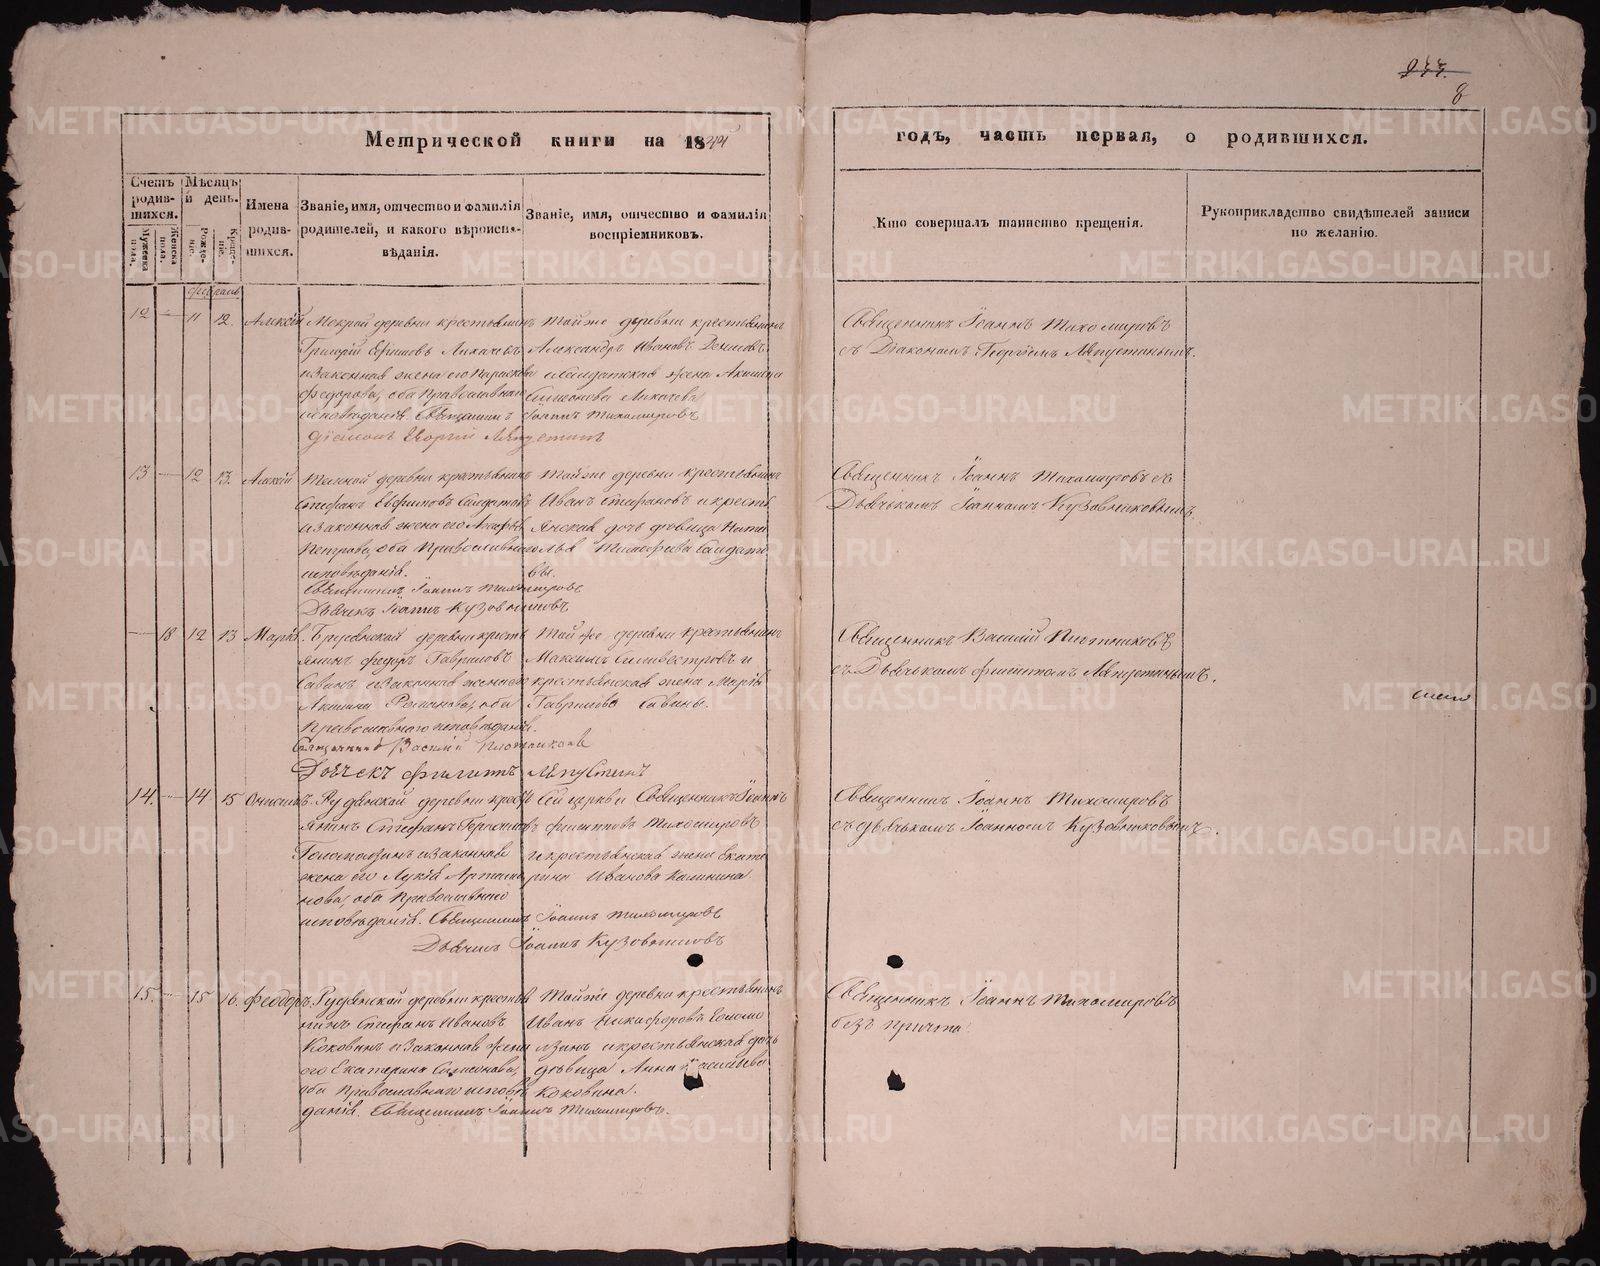 8
Метрической книги на 1844
годъ, часть первая, о родившихся.
Счетъ родив-шихся.
Мужеска пола.
Женска пола.
Мѣсяцъ и день.
Рожде-ніе.
Креще-ніе.
Имена родив-шихся.
Званіе, имя, отчество и фамилія родителей, и какого вѣроиспо-вѣданія.
Званіе, имя, отчество и фамилія воспріемниковъ.
Кто совершалъ таинство крещенія.
Рукоприкладство свидѣтелей записи по желанію.
12 11 12. Алексій
Мокрой деревни крестьянинъ
Григорій Ефимовъ Лихачевъ
и законная жена его Параскева
Федорова, оба Православнаго
исповѣданія. Священникъ Іоаннъ Тихомировъ
Діаконъ Георгій Ляпустинъ
Той же деревни крестьянинъ
Александръ Ивановъ
солдатская жена
Симеонова Лихачева
Священникъ Іоаннъ Тихомировъ
съ Діакономъ Георгіемъ Ляпустинымъ.
13 12 13. Алексій
деревни крестьянинъ
Стефанъ
и законная жена его
Петрова, оба Православнаго
исповѣданія.
Священникъ Іоаннъ Тихомировъ
Дьячекъ Іоаннъ Кузовниковъ
Той же деревни крестьянинъ
Иванъ Стефановъ и кресть
янская дочь дѣвица Ната
лья Тимофеева Солдато
ва.
Священникъ Іоаннъ Тихомировъ съ
Дьячькомъ Іоанномъ Кузовниковымъ
18 12 13 Марѳа.
деревни кресть
янинъ Федоръ Гавриловъ
Савинъ и законная жена его
Акилина Романова, оба
Православного исповѣданія.
Священникъ Василій Плотниковъ
Дьячекъ Филиппъ Ляпустинъ
Той же деревни крестьянинъ
Максимъ Силивестровъ и
крестьянская жена Марія
Гаврилова Савины.
Священникъ Василій Плотниковъ
съ Дьячькомъ Филиппомъ Ляпустинымъ.
14. 14 15 Онисимъ.
Рудянской деревни кресть
янинъ Стефанъ
и законная
жена его Лукія Артамо
нова, оба Православнаго
исповѣданія. Священникъ Іоаннъ Тихомировъ
Дьячекъ Іоаннъ Кузовниковъ
Сей церкви Священникъ Іоаннъ
Филипповъ Тихомировъ
и крестьянская жена Екате
рина Иванова Калинина
Священникъ Іоаннъ Тихомировъ
съ дьячькомъ Іоанномъ Кузовниковымъ.
15. 15 16. Феодоръ.
Рудянской деревни крестья
нинъ Стефанъ Ивановъ
Коковинъ и законная жена
его Екатерина Симеонова,
оба Православнаго исповѣ
данія. Священникъ Іоаннъ Тихомировъ.
Той же деревни крестьянинъ
Иванъ Никифоровъ Соломо
и крестьянская дочь
дѣвица Анна Васильева
Коковина.
Священникъ Іоаннъ Тихомировъ
безъ причта.
METRIKI.GASO-URAL.RU